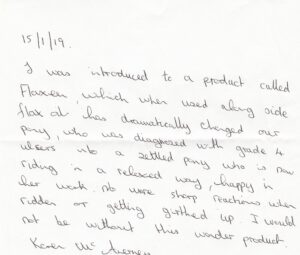 15/1/19.
I was introduced to a product called
Flaxen, which when used along side
flax oil has dramatically changed our
pony, who was diagnosed with grade 4
ulcers into a settled pony who is now
riding in a relaxed way, happy in
her work. No more sharp reactions when
ridden or getting girthed up. I would
not be without this wonder product.
Karen Mc